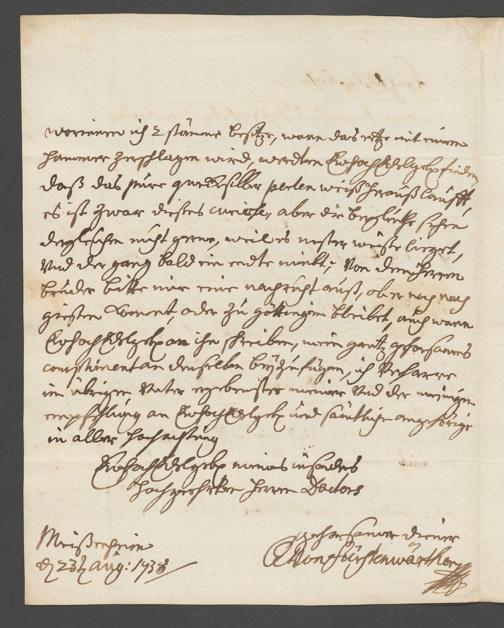 worinnen ich 2 stämme besitze, wann das ertz mit einem
hammer zerschlagen wird, werden Ew hochEdelgeb finden
daß das pure quecksilber perlen weiß herauß laufft,
es ist zwar dieses curieus, aber die bergleuthe sehen
dergleichen nicht gerne, weil es nester weiße lieget,
und der gang bald ein endte nimbt; von dero herrn
bruder bitte mir eine nachricht auß, ob er noch nach
giesen kommet, oder zu göttingen bleibet, auch wann
Ew hochEdelgeb an ihn schreiben, mein gantz gehorsames
compliment an denselben beyzufügen, ich verharre
im übrigen unter ergebenster meiner und der meinigen
empfehlung an Ew hochEdelgeb und sämtliche angehörige
in aller hochachtung
Ew hochEdelgeb meines insonders
hochgeehrten herrn Doctors
Meißenheim
d 23t aug: 1738
gehorsamer diener
von fürstenwärther